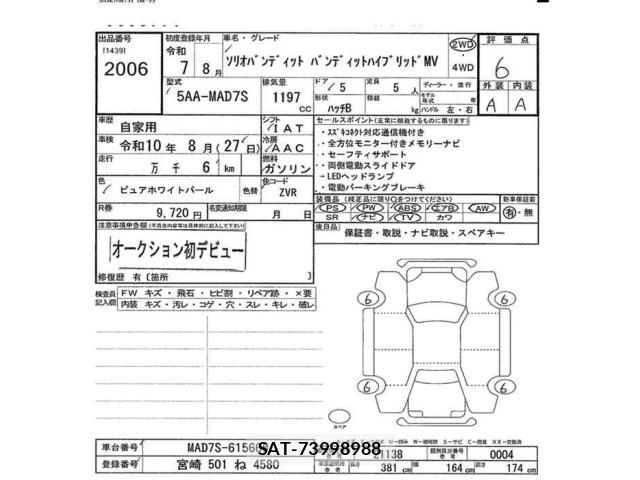 出品番号
[1439]
2006
初度登録年月
令和
7 8月
車名・グレード
ソリオバンディット バンディットハイブリッドMV
2WD
4WD
評価点
6
型式
5AA-MAD7S
排気量
1197
CC
ドア 5
形状 ハッチB
定員 5 人
積載 kg
ディーラー・並行
モデル年式 年
ハンドル 左・右
外装 内装
A A
車歴 自家用
シフト IAT
セールスポイント(正常に機能するものに限ります)
車検 令和10年 8月(27日)
冷房 AAC
走行 万 千 6 km
燃料 ガソリン
色 ピュアホワイトパール
色替
色コード ZVR
・スズキコネクト対応通信機付き
・全方位モニター付きメモリーナビ
・セーフティサポート
・両側電動スライドドア
・LEDヘッドランプ
・電動パーキングブレーキ
R券 9,720円
名変通知期限 月 日
装備品(純正品に限り○をつけてください)
PS PW ABS エアB AW
SR ナビ TV カワ
新車保証
有・無
注意事項申告欄(不具合内容等は具体的に記入して下さい)
オークション初デビュー
後日品 保証書・取説・ナビ取説・スペアキー
修復歴 有〔箇所
検査員記入欄
FW キズ・飛石・ヒビ割・リペア跡・×要
内装 キズ・汚レ・コゲ・穴・スレ・キレ・破レ
6 6
6 6
スペア
U-凹み W-補修跡 S-サビ C-腐食 XX-交換済
車台番号 MAD7S-6156
SAT-73998988
21138
類別区分番号 参考 0004
登録番号 宮崎 501 ね 4580
長さ 381 cm 幅 164 cm 高さ 174 cm